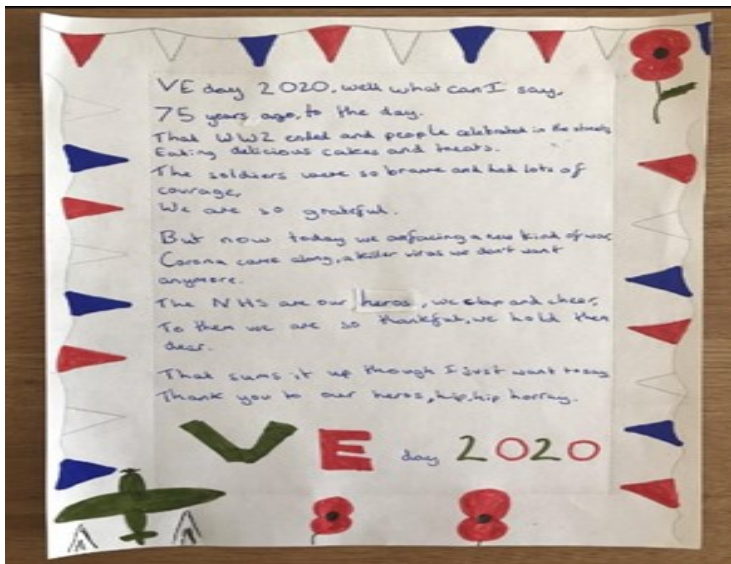 VE day 2020, well what can I say,
75 years ago, to the day.
That WW2 ended and people celebrated in the streets
Eating delicious cakes and treats.
The soldiers were so brave and had lots of
courage,
We are so grateful.
But now today we are facing a new kind of war,
Corona came along, a killer virus we don't want
anymore.
The NHS are our heros, we clap and cheer,
To them we are so thankful, we hold them
dear.
That sums it up though I just want to say
Thank you to our heros, hip, hip horray.
VE day 2020